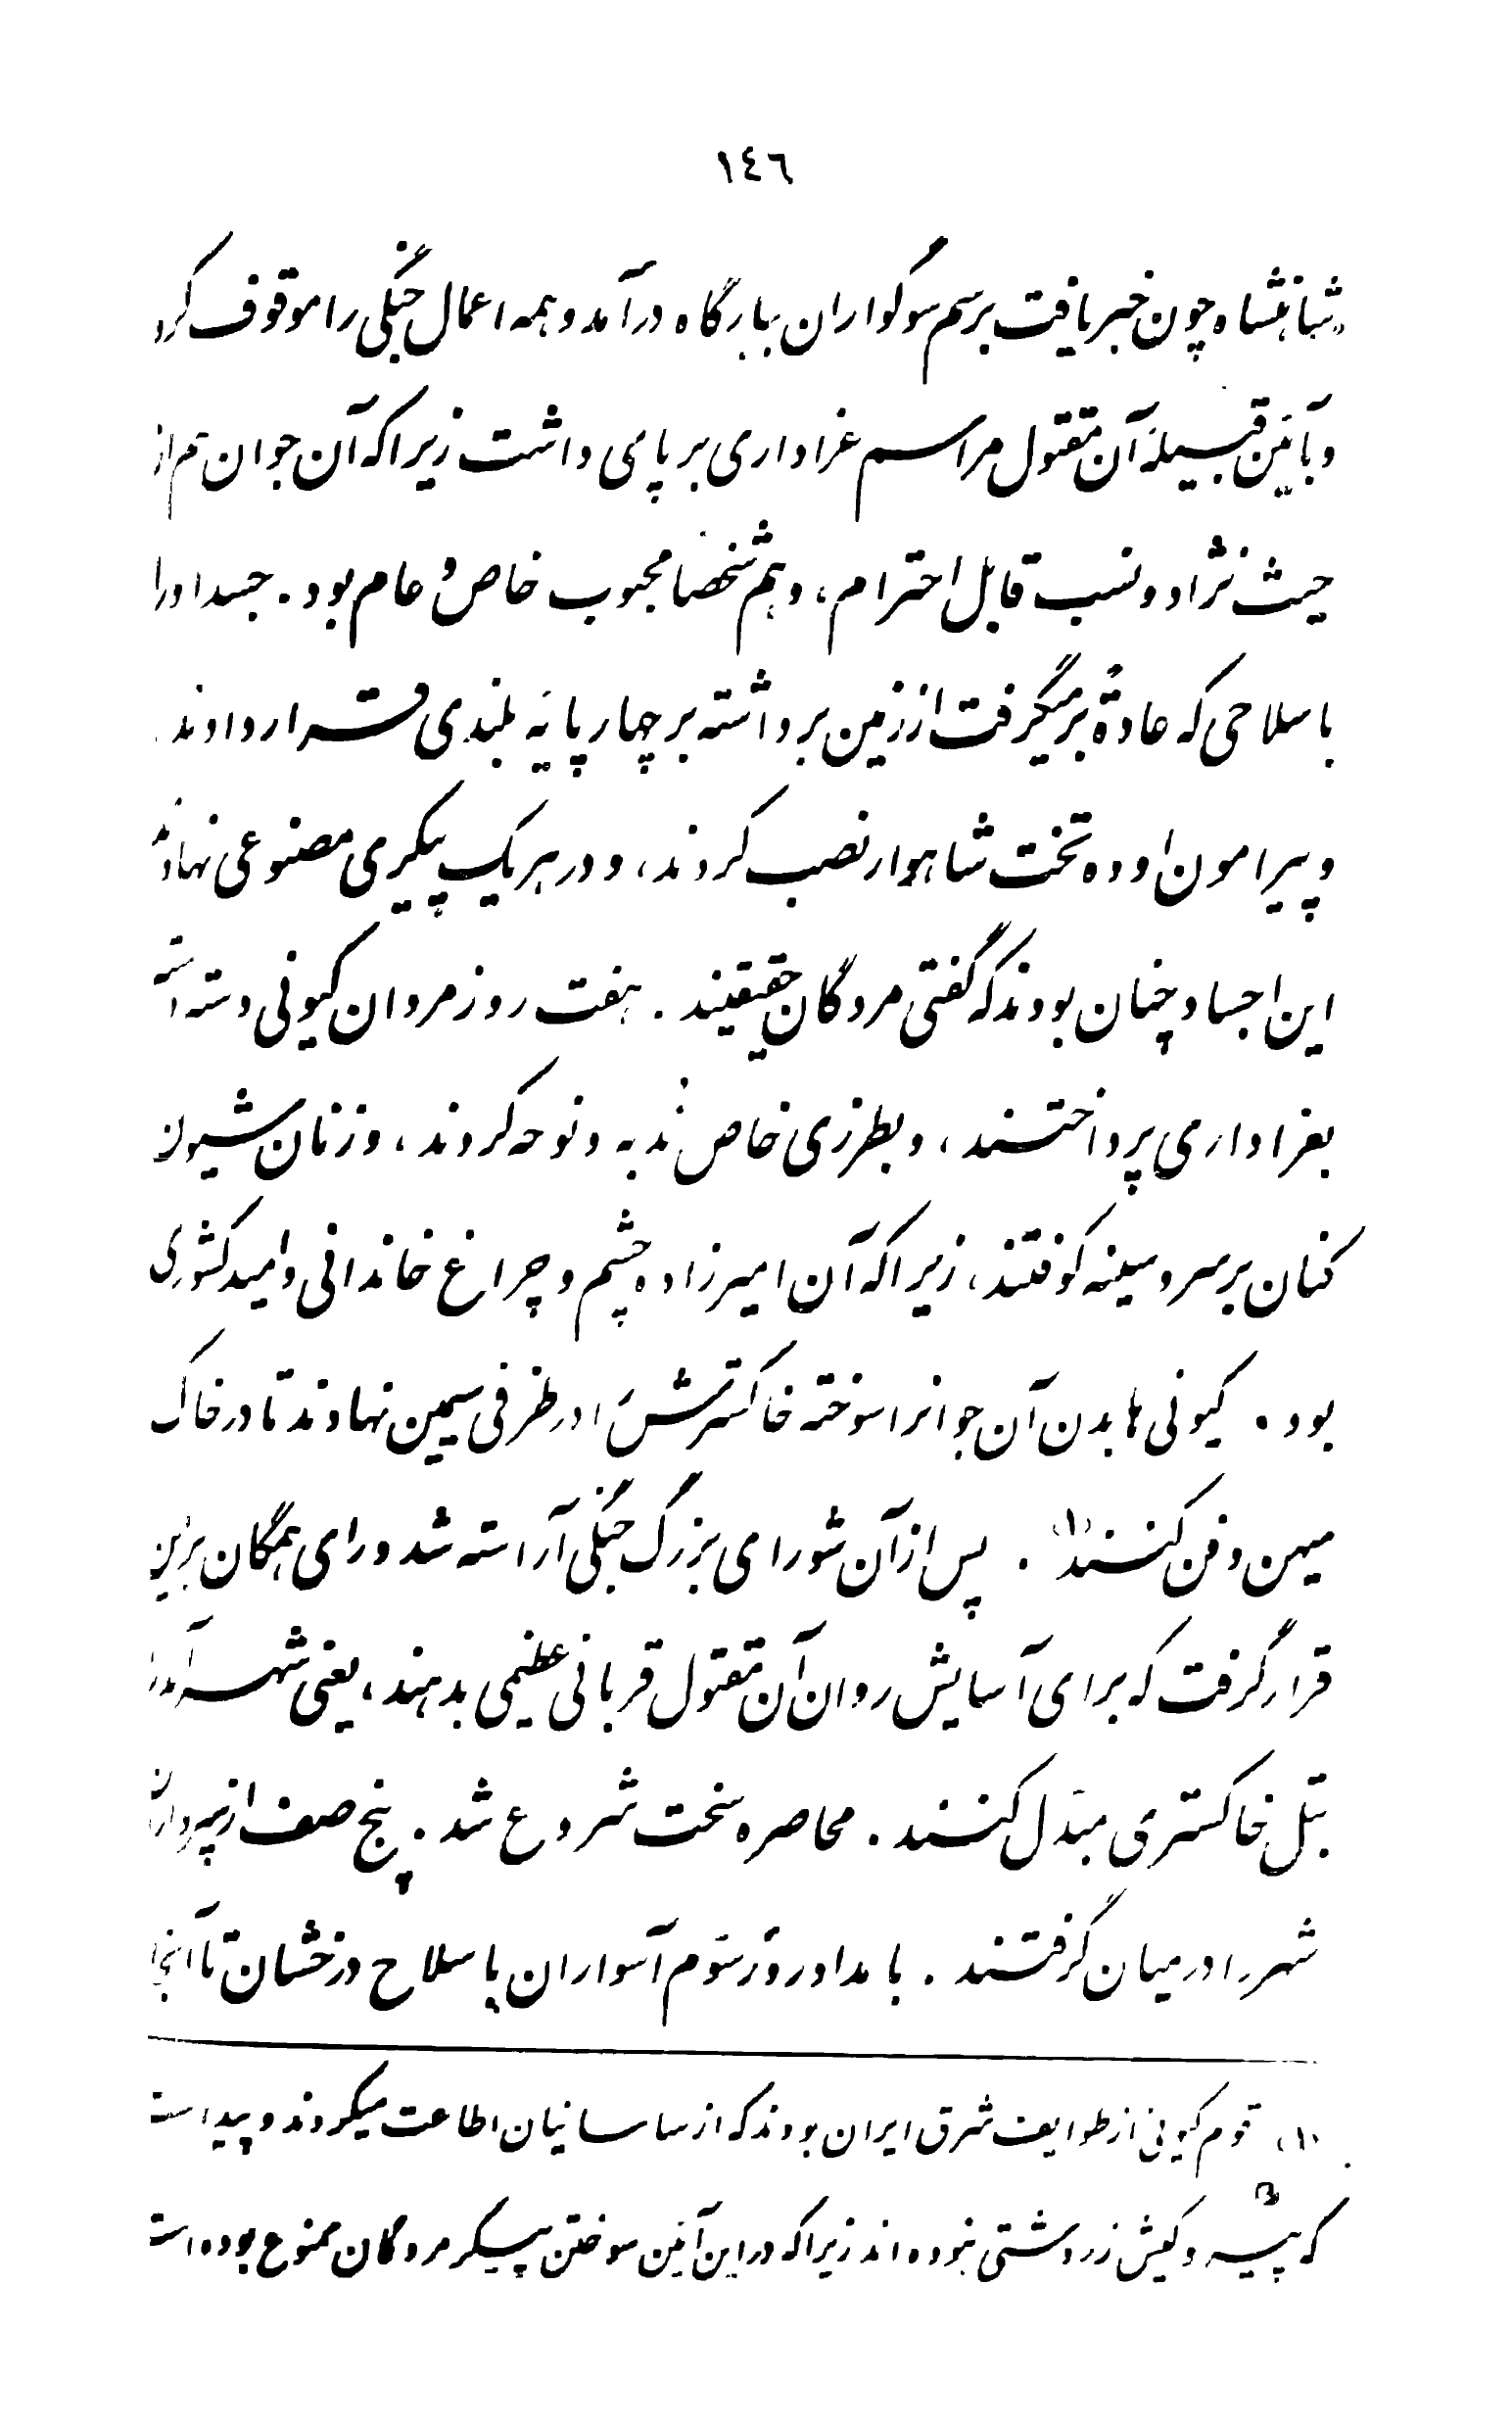 ١٤٦
شاهنشاه چون خبر یافت برسم سوگواران ببارگاه درآمد و همه اعمال جنگی را موقوف کرد
و بآئین قبیلهٔ آن مقتول مراسم عزاداری بر پای داشت زیرا که آن جوان هم از
حیث نژاد و نسب قابل احترام، و هم شخصاً محبوب خاص و عام بود. جسد او را
با سلاحی که عادةً برمیگرفت از زمین برداشته بر چهارپایهٔ بلندی قرار دادند
و پیرامون او ده تخت شاهوار نصب کردند، و در هر یک پیکری مصنوعی نهادند
این اجساد چنان بودند که گفتی مردگان حقیقیند. هفت روز مردان کیونی دسته دسته
بعزاداری پرداختند، و بطرزی خاص ندبه و نوحه کردند، و زنان شیون
کنان بر سر و سینه کوفتند، زیرا که آن امیرزاده چشم و چراغ خاندانی و امید کشوری
بود. کیونی‌ها بدن آن جوانرا سوخته خاکسترش را در ظرفی سیمین نهادند تا در خاک
میهن دفن کنند (١). پس از آن شورای بزرگ جنگی آراسته شد و رای همگان بر این
قرار گرفت که برای آسایش روان آن مقتول قربانی عظیمی بدهند، یعنی شهر آمد را
بتل خاکستری مبدّل کنند. محاصره سخت شروع شد. پنج صف از سپرداران
شهر را در میان گرفتند. بامداد روز سوّم آسواران با سلاح درخشان تا آنجا
(١) قوم کیونی از طوایف شرق ایران بودند که از ساسانیان اطاعت میکردند و پیداست
که پیرو کیش زردشتی نبوده‌اند زیرا که در این آئین سوختن پیکر مردگان ممنوع بوده است